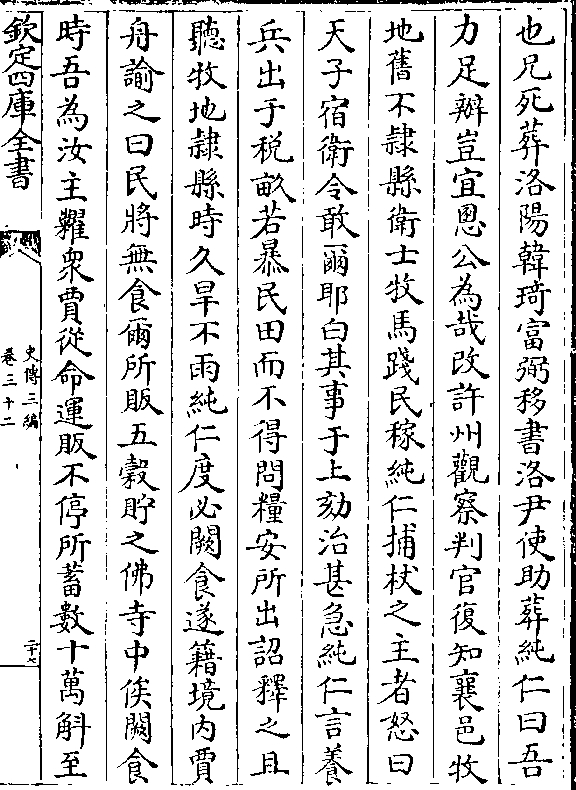 也兄死葬洛陽韓琦富弼移書洛尹使助葬純仁曰吾
力足辦豈宜慁公為哉改許州觀察判官復知襄邑牧
地舊不隸縣衛士牧馬踐民稼純仁捕杖之主者怒曰
天子宿衛令敢爾耶白其事于上劾治甚急純仁言養
兵出于税畝若暴民田而不得問糧安所出詔釋之且
聽牧地隸縣時久旱不雨純仁度必闕食遂籍境内賈
舟諭之曰民將無食爾所販五穀貯之佛寺中俟闕食
時吾為汝主糶衆賈從命運販不停所蓄數十萬斛至
欽定四庫全書
史傳三編
卷三十二
二十七